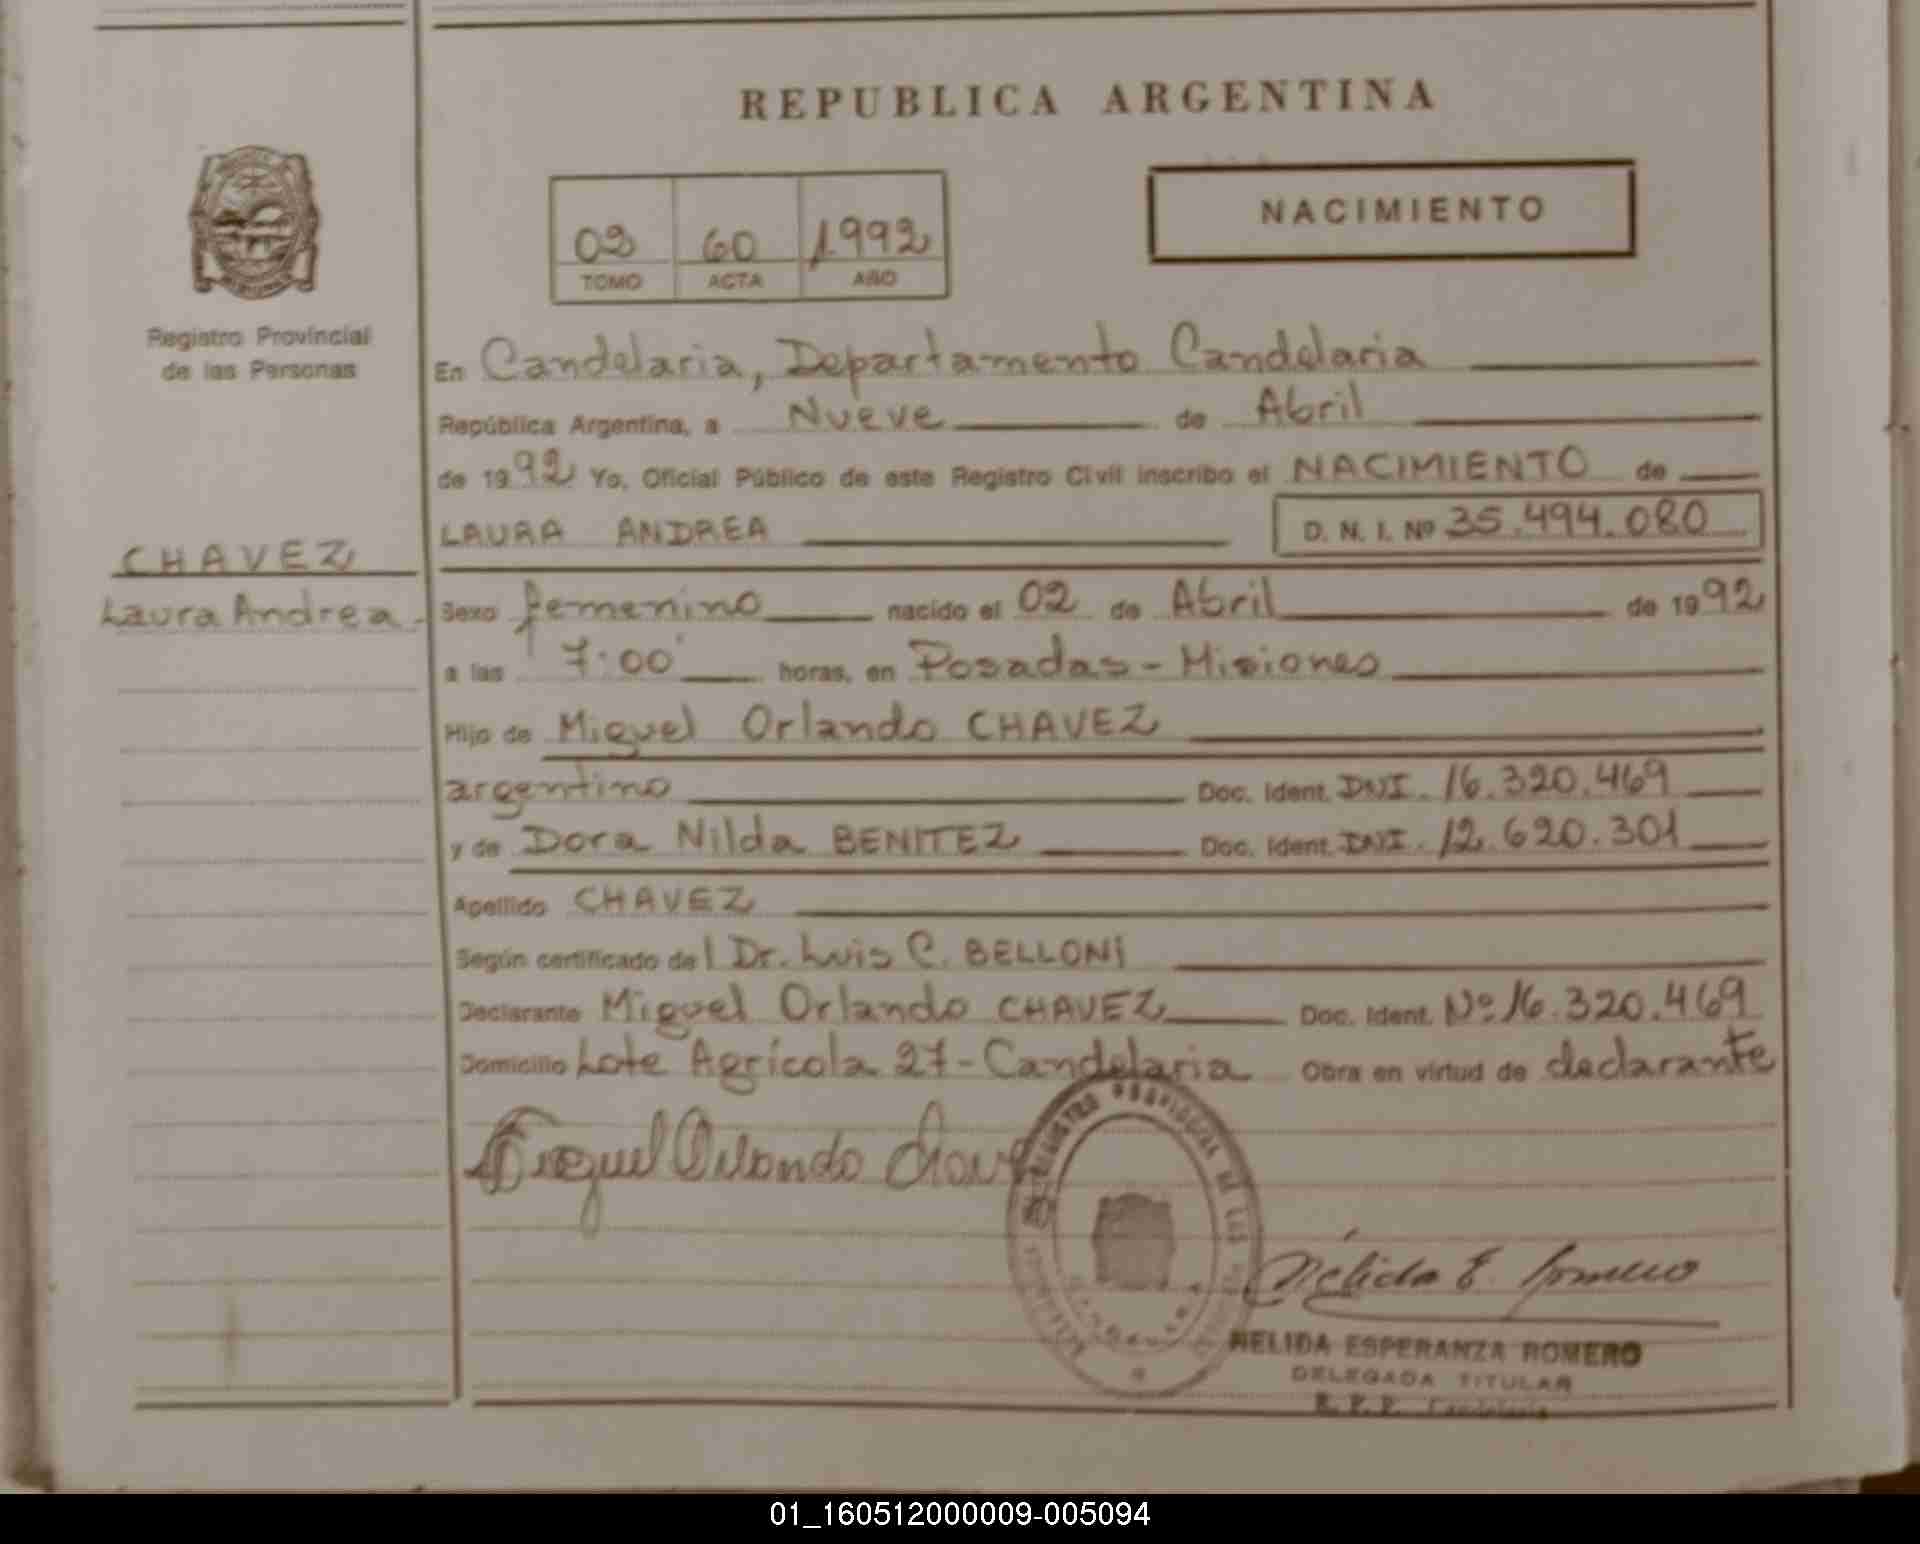 REPUBLICA ARGENTINA
NACIMIENTO
02 60 1992
TOMO ACTA AÑO
Registro Provincial
de las Personas
En Candelaria, Departamento Candelaria
República Argentina, a Nueve de Abril
de 1992 Yo, Oficial Público de este Registro Civil inscribo el NACIMIENTO de
LAURA ANDREA D. N. I. Nº 35.494.080
CHAVEZ
Laura Andrea
Sexo femenino nacido el 02 de Abril de 1992
a las 7:00 horas, en Posadas - Misiones
Hijo de Miguel Orlando CHAVEZ
argentino Doc. Ident. DNI. 16.320.469
y de Dora Nilda BENITEZ Doc. Ident. DNI. 12.620.301
Apellido CHAVEZ
Según certificado del Dr. Luis C. BELLONI
Declarante Miguel Orlando CHAVEZ Doc. Ident. Nº 16.320.469
Domicilio Lote Agrícola 27 - Candelaria Obra en virtud de declarante
Miguel Orlando Chavez
REGISTRO PROVINCIAL DE LAS
Nélida E. Romero
NELIDA ESPERANZA ROMERO
DELEGADA TITULAR
R. P. P. Candelaria
01_160512000009-005094